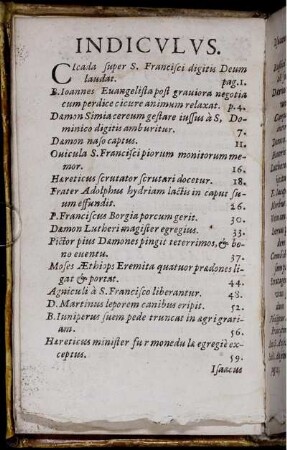 INDICVLVS.
Cicada super S. Francisci digitis Deum
laudat. pag. 1.
B. Ioannes Euangelista post grauiora negotia
cum perdice cicure animum relaxat. p. 4.
Dæmon Simia cereum gestare iussus à S, Do
minico digitis amburitur. 7.
Dæmon naso captus. 11.
Ouicula S. Francisci piorum monitorum me-
mor. 16.
Hæreticus scrutator scrutari docetur. 18.
Frater Adolphus hydriam lactis in caput su-
um effundit. 26.
P. Franciscus Borgia porcum gerit. 30.
Dæmon Lutheri magister egregius. 33.
Pictor pius Dæmones pingit teterrimos, & bo
no euentu. 37.
Moses Æthiops Eremita quatuor prædones li-
gat & portat. 44.
Agniculi à S. Francisco liberantur. 48.
D. Martinus leporem canibus eripit. 52.
B. Iuniperus suem pede truncat in agri grati-
am. 56.
Hæreticus minister fur monedula egregiè ex-
ceptus. 59.
Isaacus